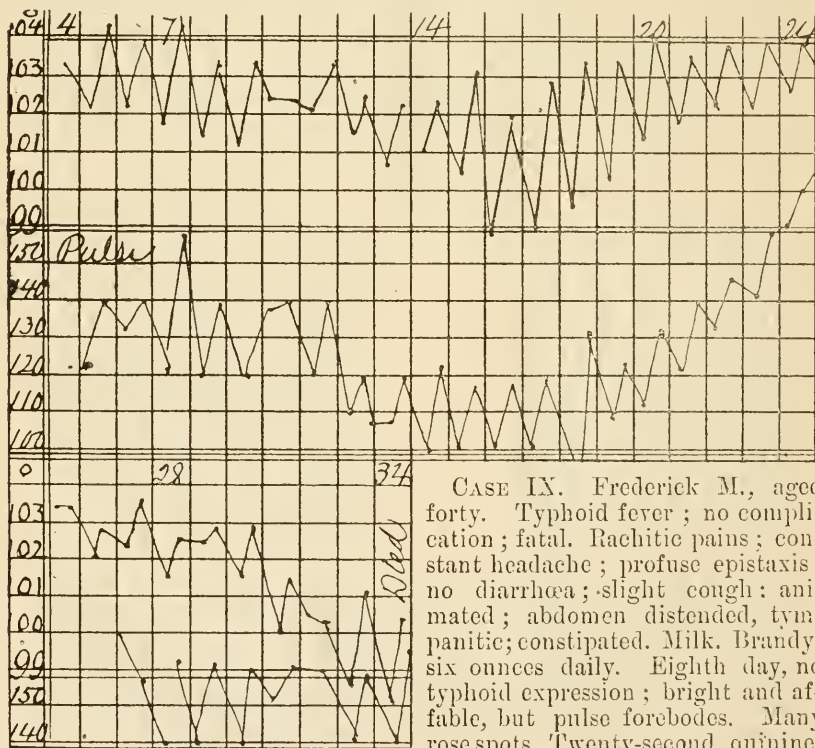 04 4 7 14 20 24
103
102
101
100
99
Pulse
150
140
130
120
110
100
28 34
103
102
101
100
99
150
140
Died
CASE IX. Frederick M., aged
forty. Typhoid fever; no compli-
cation; fatal. Rachitic pains; con-
stant headache; profuse epistaxis
no diarrhœa; slight cough: ani-
mated; abdomen distended, tym
panitic; constipated. Milk. Brandy
six ounces daily. Eighth day, no
typhoid expression; bright and af-
fable, but pulse forebodes. Many
rose spots. Twenty-second, quinine,